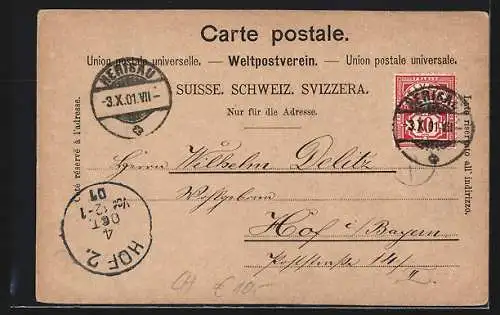 Carte postale.
Union postale universelle. — Weltpostverein. — Union postale universale.
SUISSE. SCHWEIZ. SVIZZERA.
Nur für die Adresse.
Côté réservé à l'adresse.
Lato riservato all' indirizzo.
HERISAU
-3.X.01.VII-
HERISAU
-3.X.01.VII-
10
Herrn Wilhelm Delitz
Hof i/Bayern
Poststraße 14/II
HOF 2.
4
OKT.
12-1
01
CH € 10,-